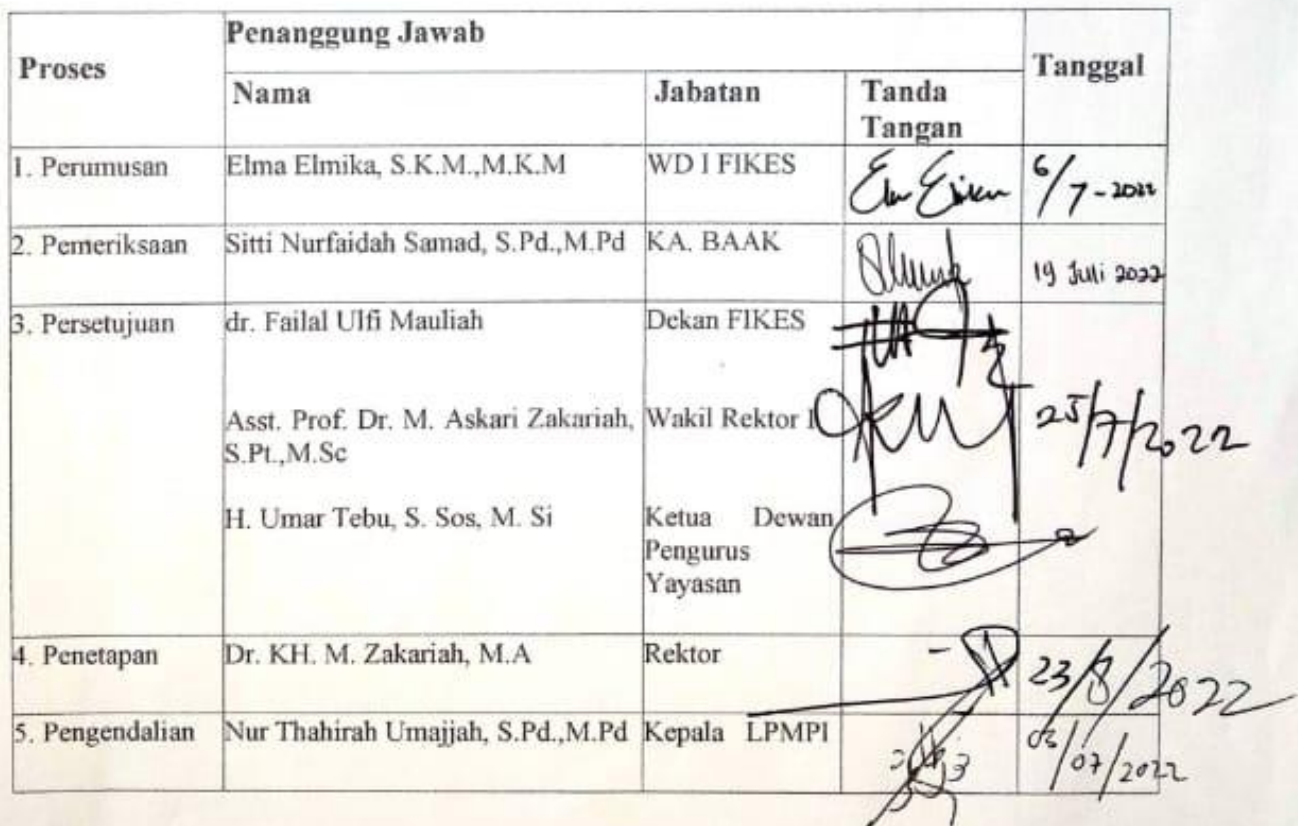 Proses
Penanggung Jawab
Tanggal
Nama
Jabatan
Tanda
Tangan
1. Perumusan
Elma Elmika, S.K.M.,M.K.M
WD I FIKES
6/7-2022
2. Pemeriksaan
Sitti Nurfaidah Samad, S.Pd.,M.Pd
KA. BAAK
19 Juli 2022
3. Persetujuan
dr. Failal Ulfi Mauliah
Dekan FIKES
Asst. Prof. Dr. M. Askari Zakariah,
S.Pt.,M.Sc
Wakil Rektor I
25/7/2022
H. Umar Tebu, S. Sos, M. Si
Ketua Dewan
Pengurus
Yayasan
4. Penetapan
Dr. KH. M. Zakariah, M.A
Rektor
23/8/2022
5. Pengendalian
Nur Thahirah Umajjah, S.Pd.,M.Pd
Kepala LPMPI
/07/2022